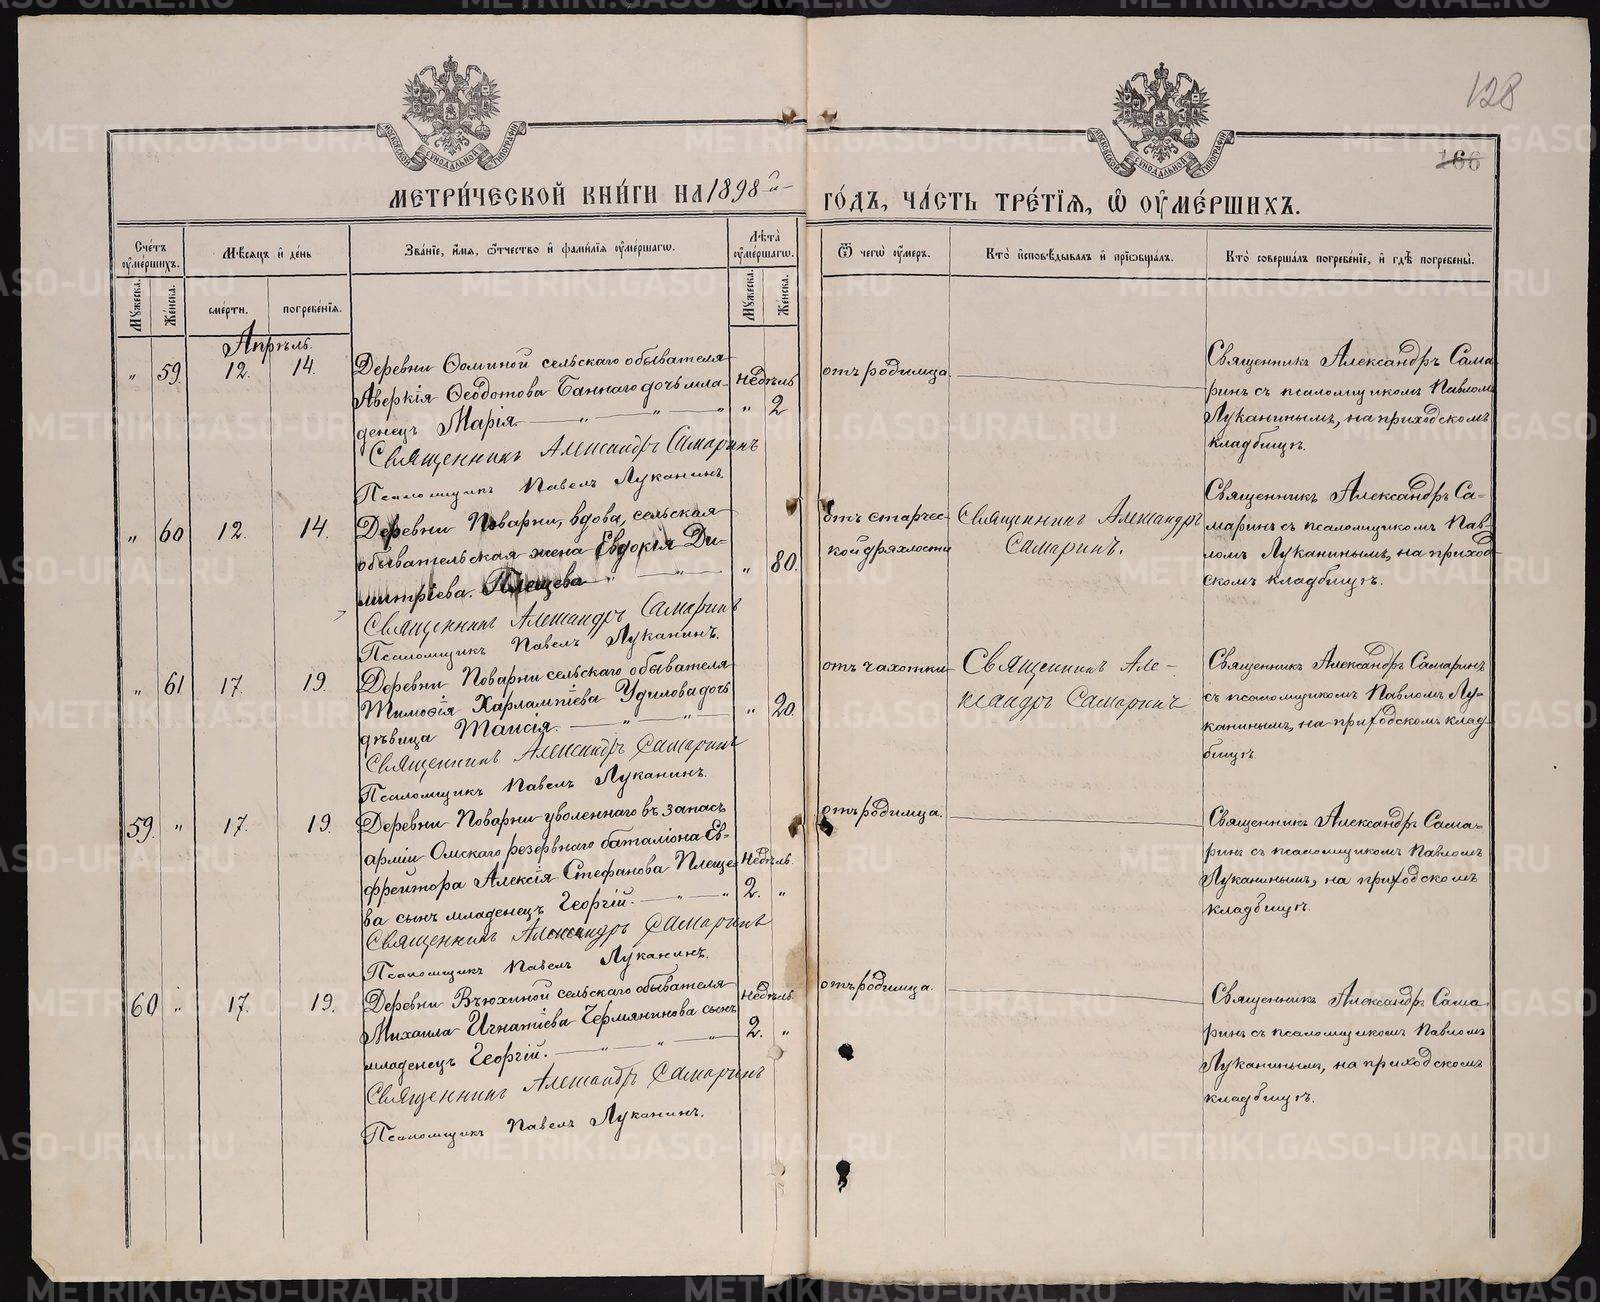 128
166
МОСКОВСКОЙ СѴНОДАЛЬНОЙ ТИПОГРАФІИ
МОСКОВСКОЙ СѴНОДАЛЬНОЙ ТИПОГРАФІИ
МЕТРИ́ЧЕСКОЙ КНИ́ГИ НА 1898 й
ГО́ДЪ, ЧА́СТЬ ТРЕ́ТІѦ, Ѡ҆ ОУ҆МЕ́РШИХЪ.
Сче́тъ оу҆ме́ршихъ.
Мѣ́сяцъ и҆ де́нь
Зва́нїе, и҆́мя, ѻ҆́тчество и҆ фами́лїя оу҆ме́ршагѡ.
Лѣ́та оу҆ме́ршагѡ.
Ѿ чегѡ̀ оу҆́меръ.
Кто̀ и҆сповѣ́дывалъ и҆ прїѡбща́лъ.
Кто̀ соверша́лъ погребе́нїе, и҆ гдѣ̀ погребены̀.
Му́жеска.
Же́нска.
сме́рти.
погребе́нїя.
Му́жеска.
Же́нска.
Апрѣль.
„ 59. 12. 14.
Деревни Ѳоминой сельскаго обывателя
Аверкія Ѳеодотова Баннаго дочь мла-
денецъ Марія. „ „ „
недѣль
„ 2
Священникъ Александръ Самаринъ
Псаломщикъ Павелъ Луканинъ.
отъ родимца.
Священникъ Александръ Сама-
ринъ съ псаломщикомъ Павломъ
Луканинымъ, на приходскомъ
кладбищѣ.
„ 60 12. 14.
Деревни Поварни, вдова, сельская
обывательская жена Евдокія Ди-
митріева. Плещева „ „
„ 80.
Священникъ Александръ Самаринъ
Псаломщикъ Павелъ Луканинъ.
отъ старчес-
кой дряхлости
Священникъ Александръ
Самаринъ.
Священникъ Александръ Са-
маринъ съ псаломщикомъ Пав-
ломъ Луканинымъ, на приход-
скомъ кладбищѣ.
„ 61 17. 19.
Деревни Поварни сельскаго обывателя
Тимоѳія Харлампіева Удилова дочь
дѣвица Таисія. „ „
„ 20.
Священникъ Александръ Самаринъ
Псаломщикъ Павелъ Луканинъ.
отъ чахотки
Священникъ Але-
ксандръ Самаринъ
Священникъ Александръ Самаринъ
съ псаломщикомъ Павломъ Лу-
канинымъ, на приходскомъ клад-
бищѣ.
59. „ 17. 19.
Деревни Поварни уволеннаго въ запасъ
арміи Омскаго резервнаго баталіона Еф-
фрейтора Алексія Стефанова Плеще-
ва сынъ младенецъ Георгій. „ „
недѣль.
2. „
Священникъ Александръ Самаринъ
Псаломщикъ Павелъ Луканинъ.
отъ родимца.
Священникъ Александръ Сама-
ринъ съ псаломщикомъ Павломъ
Луканинымъ, на приходскомъ
кладбищѣ.
60 „ 17. 19.
Деревни Вьюхиной сельскаго обывателя
Михаила Игнатіева Чермянинова сынъ
младенецъ Георгій. „ „ „
недѣль
2. „
Священникъ Александръ Самаринъ
Псаломщикъ Павелъ Луканинъ.
отъ родимца.
Священникъ Александръ Сама-
ринъ съ псаломщикомъ Павломъ
Луканинымъ, на приходскомъ
кладбищѣ.
METRIKI.GASO-URAL.RU